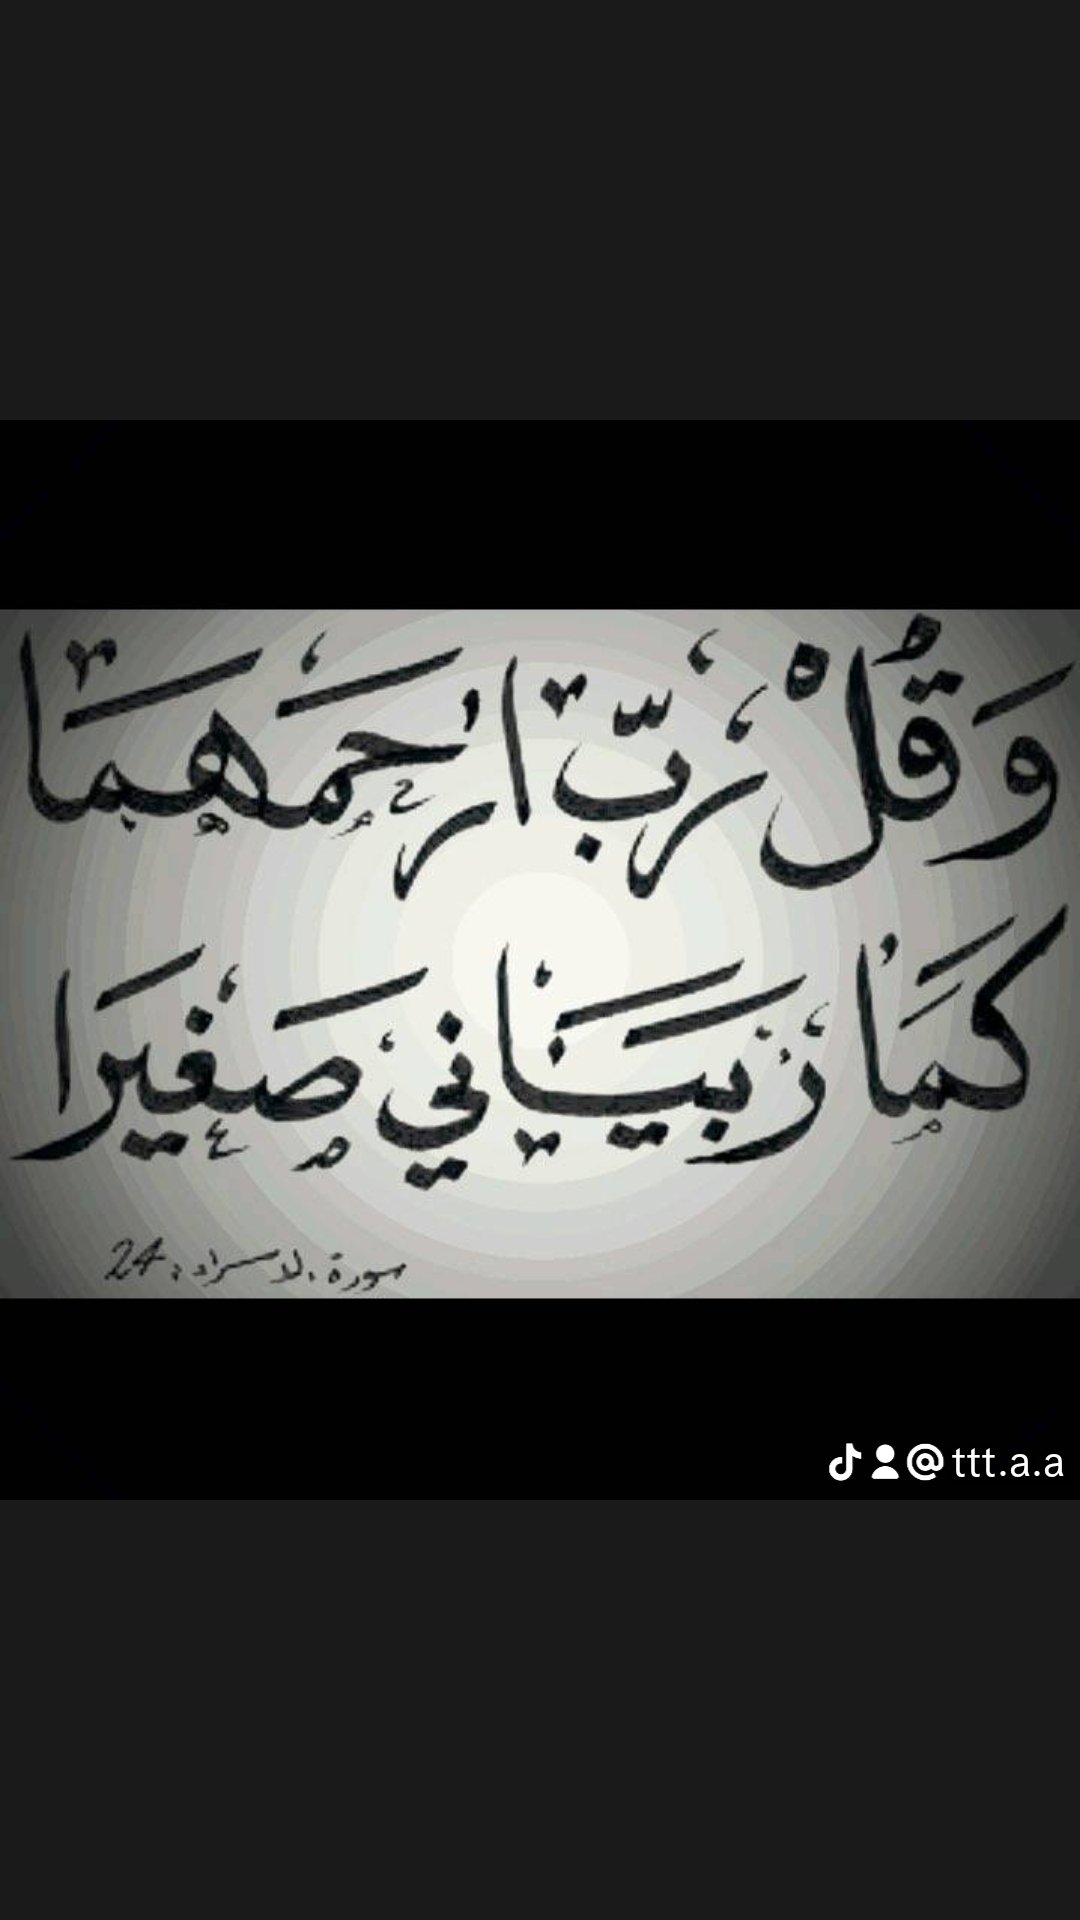 وَقُلْ رَبِّ ارْحَمْهُمَا
كَمَا رَبَّيَانِي صَغِيرًا
سورة الاسراء: 24
@ttt.a.a